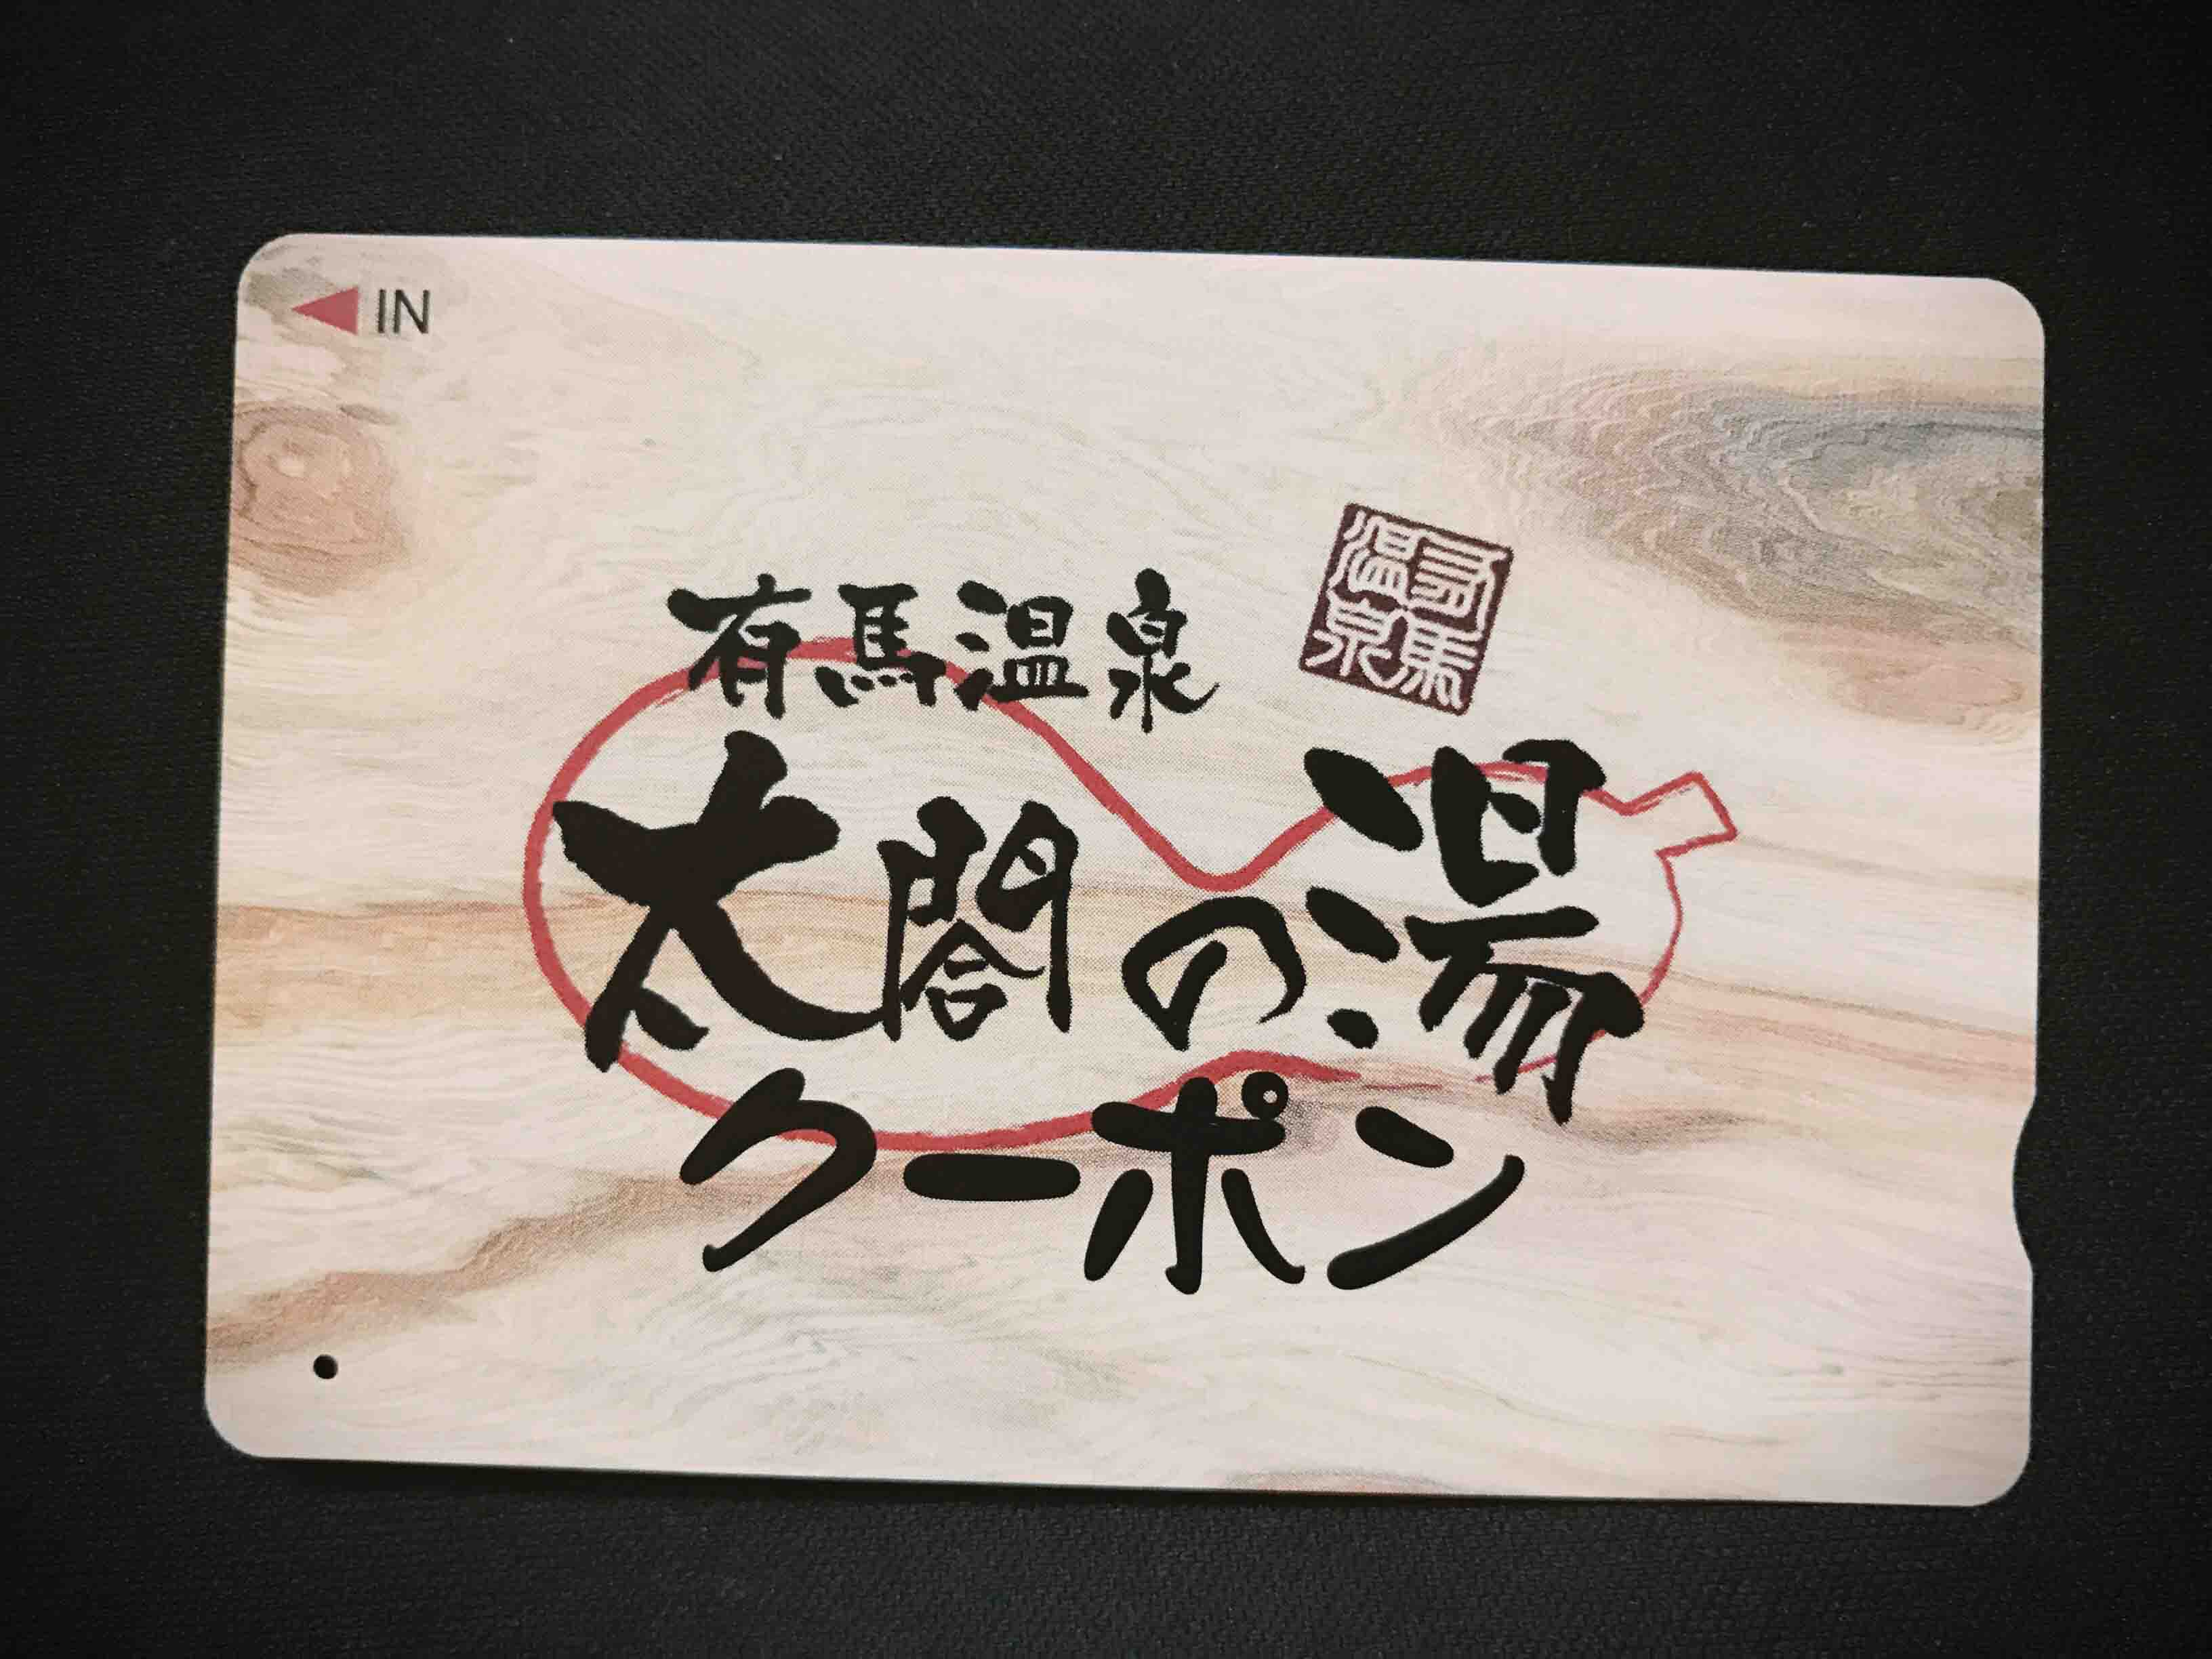 IN
有馬温泉
有馬温泉
太閤の湯
クーポン